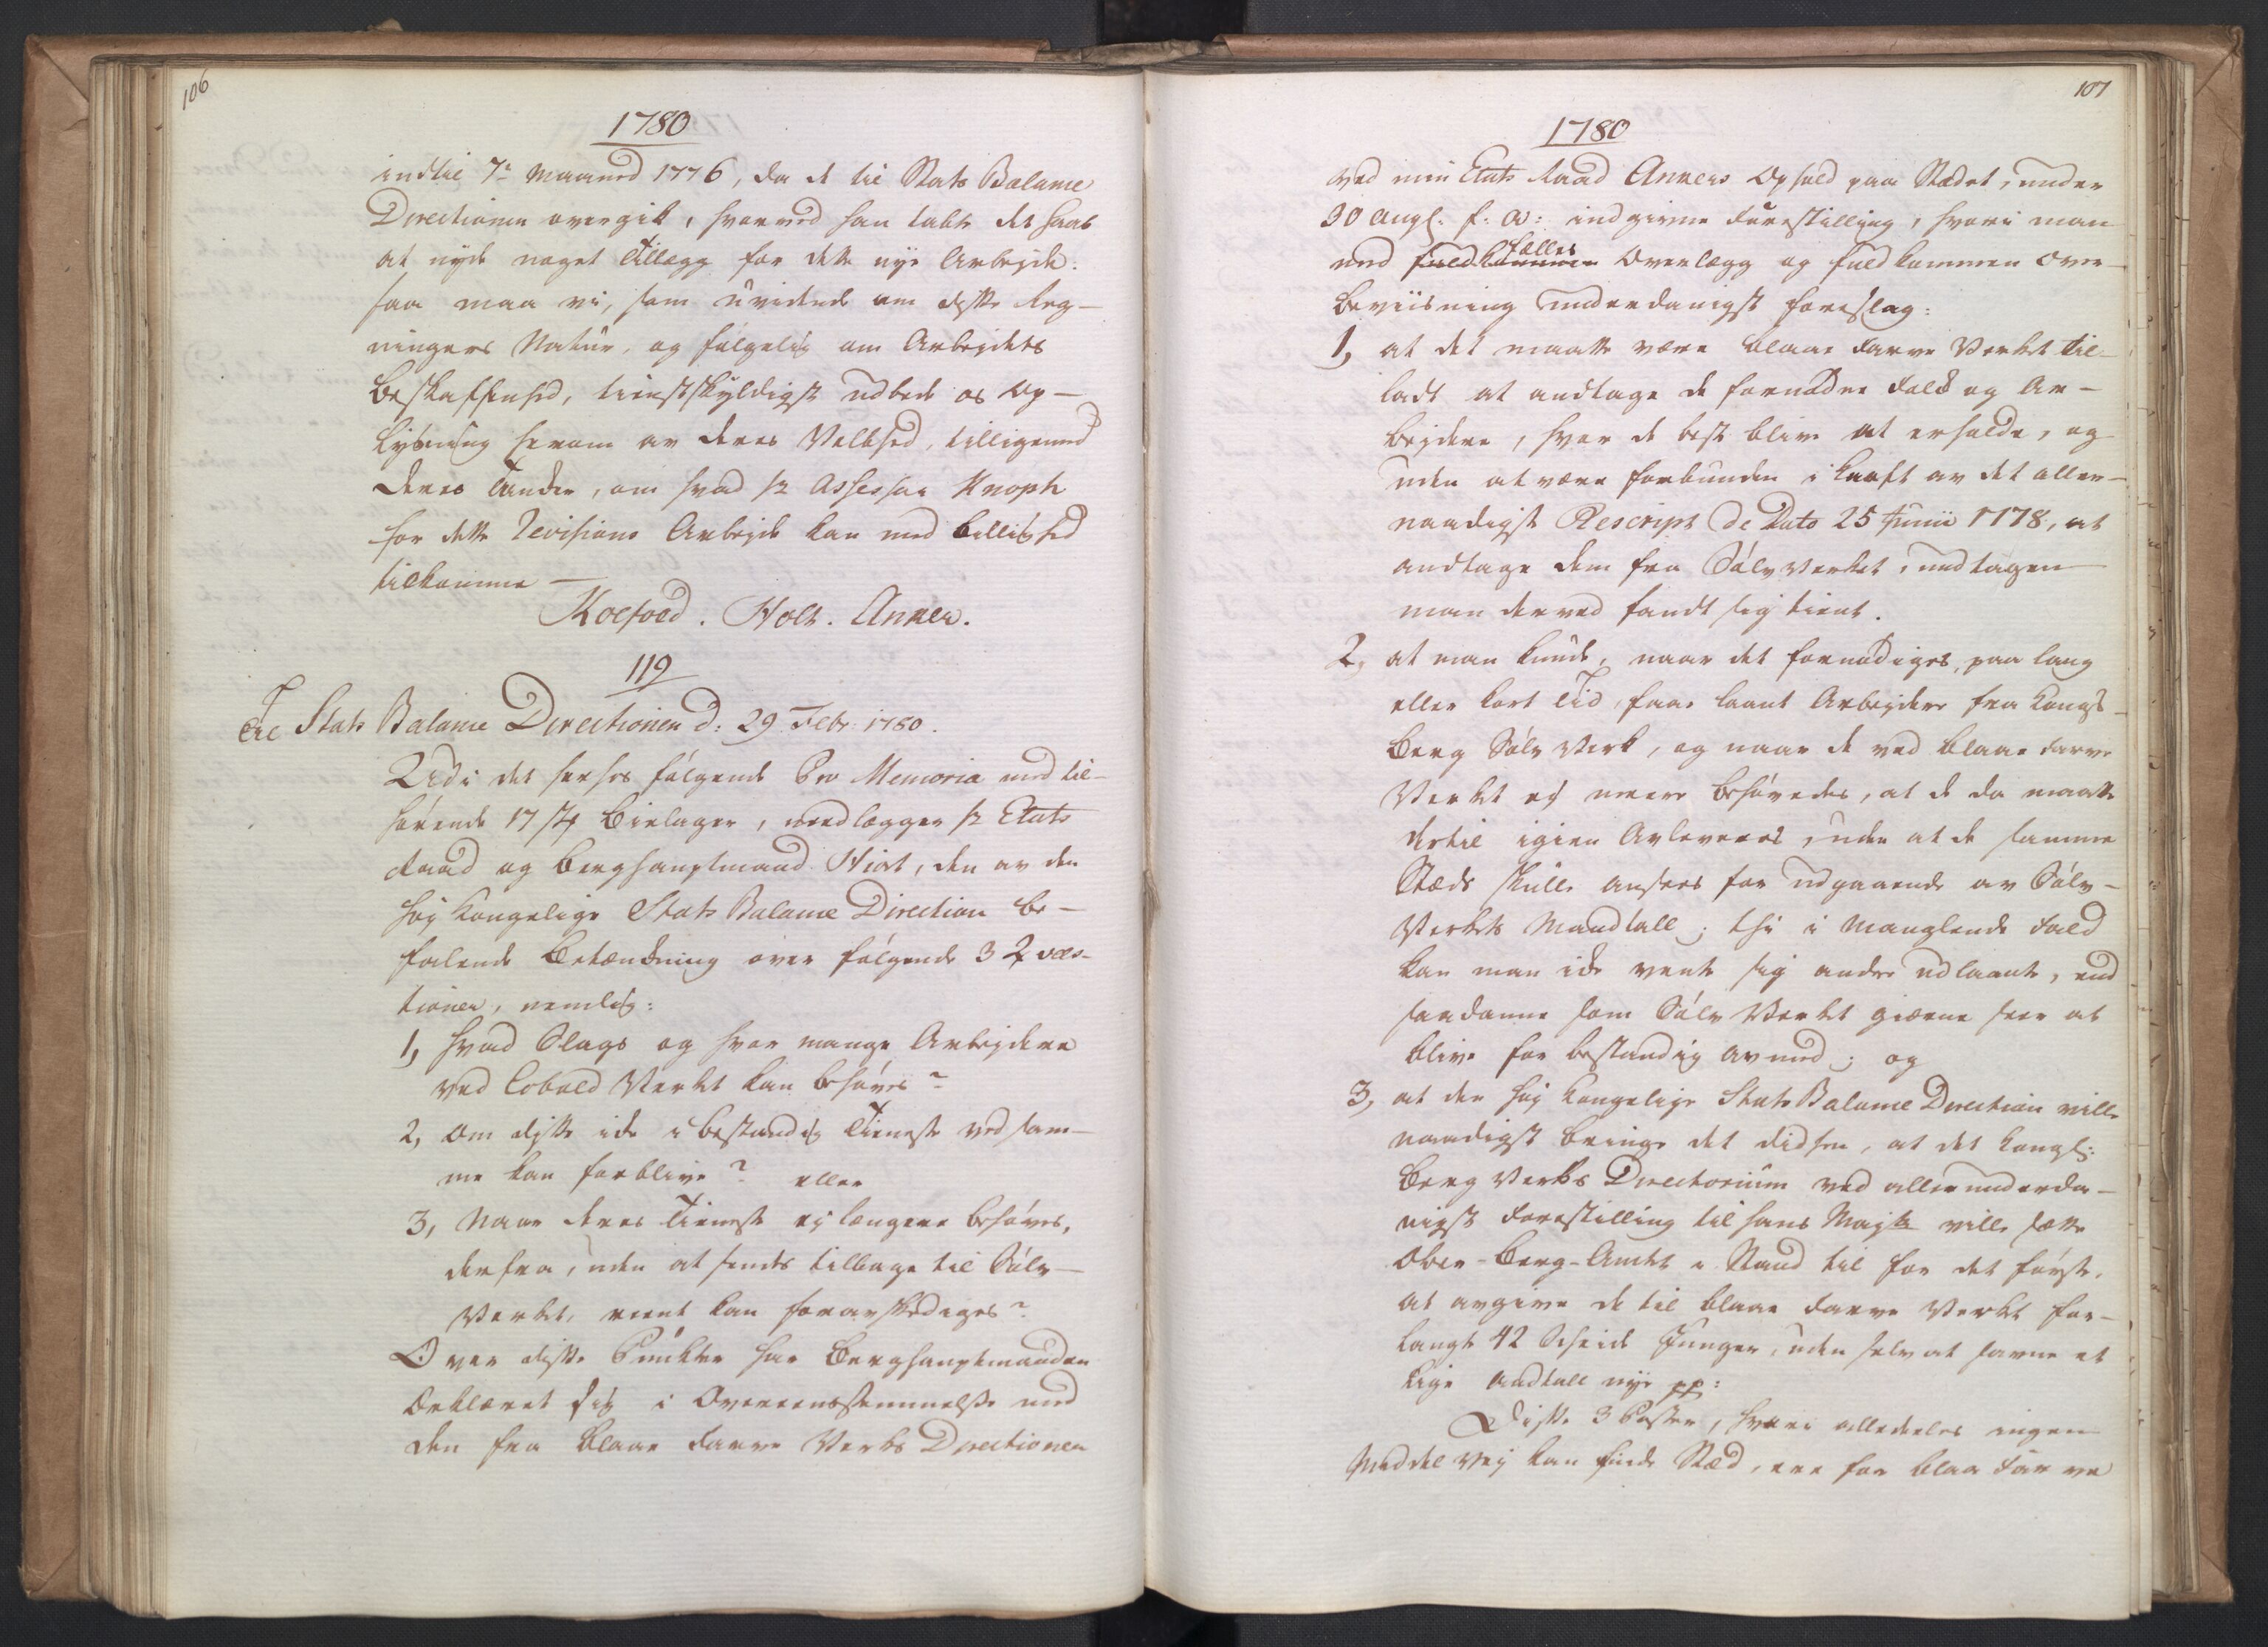 106
1780
indtil 7br Maaned 1776, da de til Stats Balance
Directionen overgik, hvorved han tabte det Haab
at nyde noget Tillægg for dette nye Arbejde:
saa maa vi, som uvidende om disse Reg-
ningers Natur, og følgelig om Arbejdets
Beskaffenhed, tienstskyldigst udbede os Op-
lysning herom av deres Velbhed, tilligemed
deres Tanker, om hvad Hr Assessor Knoph
for dette Revisions Arbejde kan med Billighed
tilkomme —
Koefoed. Holt. Anker.
119
Til Stats Balance Directionen d: 29 Febr. 1780.
Udi det herhos følgende Pro Memoria med til-
hørende 17 st Bielager, nedlægger Hr Etats
Raad og Berghauptmand Hiort, den av den
høy Kongelige Stats Balance Direction be-
falende Betænkning over følgende 3 Qvæs-
tioner, nemlig:
1, hvad Slags og hvor mange Arbejdere
ved Cobold Verket kan behøves?
2, om disse ikke i bestandig Tieneste ved sam-
me kan forblive? eller
3, Naar deres Tieneste ej længere behøves,
derfra, uden at sendes tilbage til Sølv-
Verket, reent kan foravskediges?
Over disse Puncter har Berghauptmanden
Erklæret sig i Overeensstemmelse med
den fra Blaae Farve Verks Directionen
107
1780
ved min Etats Raad Ankers Ophold paa Stædet, under
30 Aug. f: A: indgivne Forestilling, hvori man
med fuldkommen fælles Overlægg og fuldkommen Over-
beviisning underdanigst foreslog:
1, at det maatte være Blaae Farve Verket til-
ladt at andtage de fornødne Folk og Ar-
bejdere, hvor de best blive at erholde, og
uden at være forbunden i Kraft av det aller-
naadigst Rescript de Dato 25 Junii 1778, at
andtage dem fra Sølv Verket, undtagen
man derved fandt sig tient.
2, at man kunde, naar det fornødiges, paa lang
eller kort Tid, faae laant Arbejdere fra Kongs-
berg Sølv Verk, og naar de ved Blaae Farve
Verket ej meere behøvedes, at de da maatte
dertil igien Avleveres, uden at de samme
Stæds skulle ansees for udgaaende av Sølv-
Verkets Mandtall; thi i manglende Fald
kan man ikke vente sig andre udlaante, end
saadanne som Sølv Verket gierne seer at
blive for bestandig av med; og
3, at den høy Kongelige Stats Balance Direction ville
naadigst bringe det didhen, at det Kongl:
Berg Verks Directorium ved allerunderda-
nigst Forestilling til Hans Majst ville sætte
Ober-Berg-Amtet i Stand til for det første,
at avgive de til Blaae Farve Verket for-
langte 42 Scheide Junger, uden selv at savne et
lige Andtall nye pp:
Disse 3 Poster, hvori alledeeles ingen
Middel Vej kan finde Stæd, ere for Blaa Farve